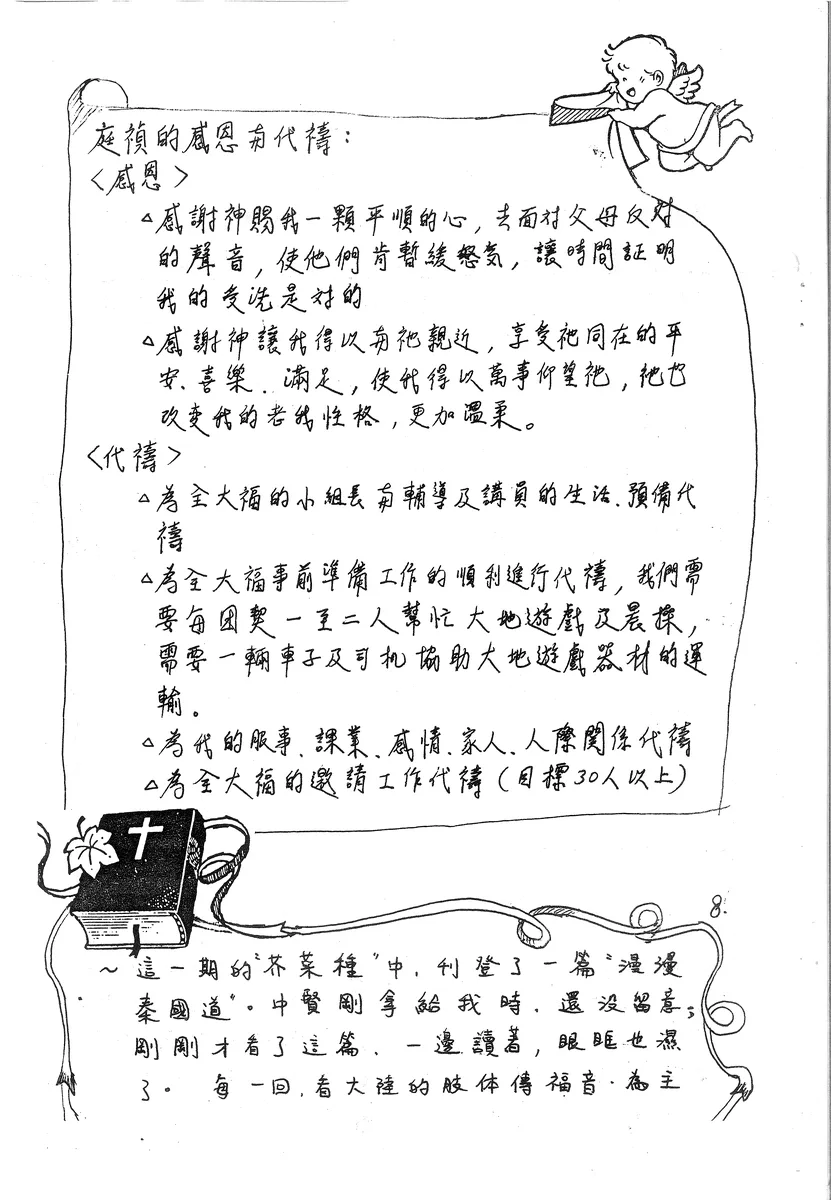 庭禎的感恩与代禱：
<感恩>
△感謝神賜我一顆平順的心，去面对父母反对
的聲音，使他們肯暫緩怒氣，讓時間証明
我的受洗是对的
△感謝神讓我得以与祂親近，享受祂同在的平
安、喜樂、滿足，使我得以萬事仰望祂，祂也
改变我的老我性格，更加溫柔。
<代禱>
△為全大福的小組長与輔導及講員的生活、預備代
禱
△為全大福事前準備工作的順利進行代禱，我們需
要每团契一至二人幫忙大地遊戲及晨操，
需要一輛車子及司机協助大地遊戲器材的運
輸。
△為我的服事、課業、感情、家人、人際関係代禱
△為全大福的邀請工作代禱（目標30人以上）
8.
～這一期的"芥菜種"中，刊登了一篇"漫漫
秦國道"。中賢剛拿給我時，還没留意；
剛剛才看了這篇，一邊讀著，眼眶也濕
了。每一回，看大陸的肢体傳福音，為主